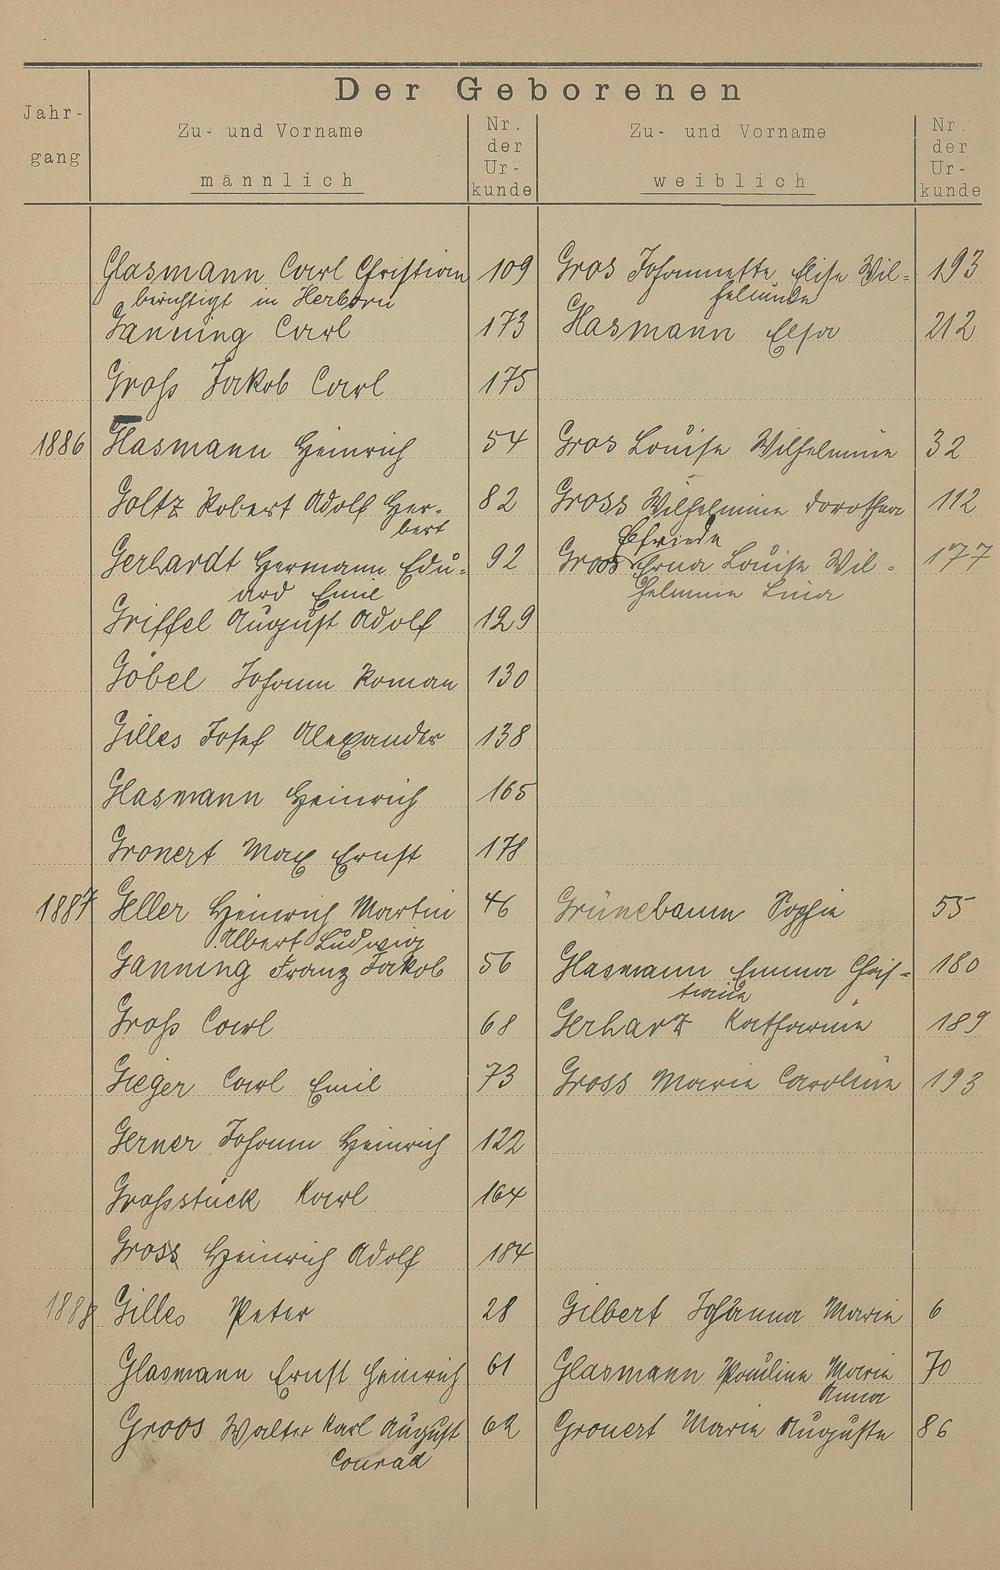 Der Geborenen
Jahr-
gang
Zu- und Vorname
männlich
Nr.
der
Ur-
kunde
Zu- und Vorname
weiblich
Nr.
der
Ur-
kunde
Glasmann Carl Christian 109 Gros Johannette Elise Wil-
berichtigt in Herborn helminde
Ganning Carl 173 Glasmann Elsa 212
Groß Jakob Carl 175
1886 Glasmann Heinrich 54 Gros Louise Wilhelmine 32
Goltz Robert Adolf Her- 82 Gross Wilhelmine Dorothea 112
bert Elfriede
Gerhardt Hermann Edu- 92 Groos Erna Louise Wil- 177
ard Emil helmine Lina
Griffel August Adolf 129
Göbel Johann Roman 130
Gilles Josef Alexander 138
Glasmann Heinrich 165
Gronert Max Ernst 178
1887 Geller Heinrich Martin 46 Grünebaum Sophie 55
Albert Ludwig
Ganning Franz Jakob 56 Glasmann Emma Chris- 180
tiane
Groß Carl 68 Gerharz Katharine 189
Gieger Carl Emil 73 Gross Marie Caroline 193
Gerner Johann Heinrich 122
Großstück Karl 164
Gross Heinrich Adolf 184
1888 Gilles Peter 28 Gilbert Johanna Marie 6
Glasmann Ernst Heinrich 61 Glasmann Pauline Marie 70
Anna
Groos Walter Karl August 62 Gronert Marie Auguste 86
Conrad